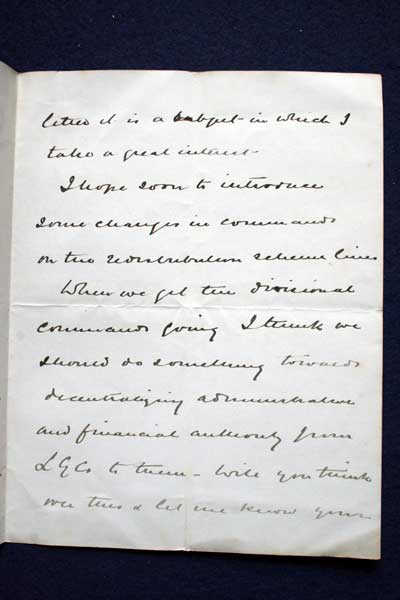 letter it is a subject in which I
take a great interest
I hope soon to introduce
some changes in commands
on the redistribution scheme lines
When we get the divisional
commands going I think we
should do something towards
decentralizing administrative
and financial authority from
LGCs to them – Will you think
over this & let me know your